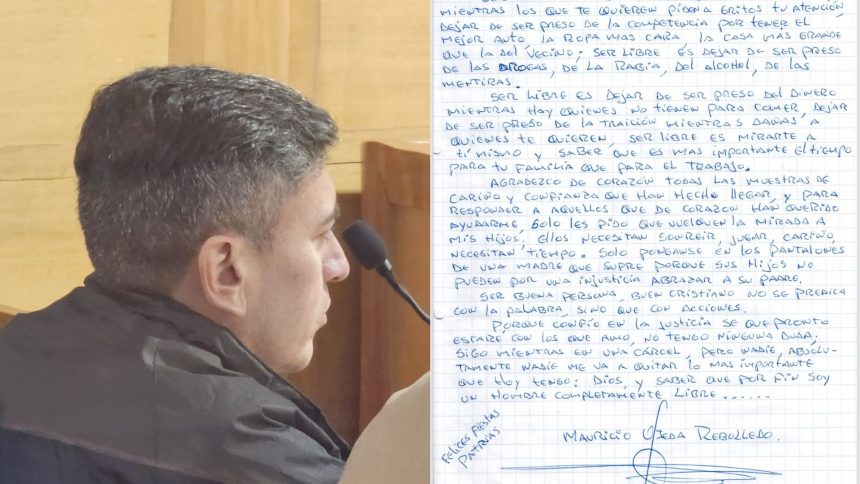 MIENTRAS LOS QUE TE QUIEREN PIDEN A GRITOS TU ATENCIÓN,
DEJAR DE SER PRESO DE LA COMPETENCIA POR TENER EL
MEJOR AUTO, LA ROPA MAS CARA, LA CASA MAS GRANDE
QUE LA DEL VECINO; SER LIBRE ES DEJAR DE SER PRESO
DE LAS DROGAS, DE LA RABIA, DEL ALCOHOL, DE LAS
MENTIRAS.
SER LIBRE ES DEJAR DE SER PRESO DEL DINERO
MIENTRAS HAY QUIENES NO TIENEN PARA COMER, DEJAR
DE SER PRESO DE LA TRAICIÓN MIENTRAS DAÑAS A
QUIENES TE QUIEREN, SER LIBRE ES MIRARTE A
TI MISMO Y SABER QUE ES MAS IMPORTANTE EL TIEMPO
PARA TU FAMILIA QUE PARA EL TRABAJO.
AGRADEZCO DE CORAZÓN TODAS LAS MUESTRAS DE
CARIÑO Y CONFIANZA QUE HAN HECHO LLEGAR, Y PARA
RESPONDER A AQUELLOS QUE DE CORAZON HAN QUERIDO
AYUDARME, SOLO LES PIDO QUE VUELQUEN LA MIRADA A
MIS HIJOS, ELLOS NECESITAN SONREIR, JUGAR, CARIÑO,
NECESITAN TIEMPO. SOLO PONGANSE EN LOS PANTALONES
DE UNA MADRE QUE SUFRE PORQUE SUS HIJOS NO
PUEDEN POR UNA INJUSTICIA ABRAZAR A SU PADRE.
SER BUENA PERSONA, BUEN CRISTIANO NO SE PREDICA
CON LA PALABRA, SINO QUE CON ACCIONES.
PORQUE CONFÍO EN LA JUSTICIA SE QUE PRONTO
ESTARE CON LOS QUE AMO, NO TENGO NINGUNA DUDA,
SIGO MIENTRAS EN UNA CÁRCEL, PERO NADIE, ABSOLU-
TAMENTE NADIE ME VA A QUITAR LO MAS IMPORTANTE
QUE HOY TENGO: DIOS, Y SABER QUE POR FIN SOY
UN HOMBRE COMPLETAMENTE LIBRE......
FELICES FIESTAS
PATRIAS
MAURICIO OJEDA REBOLLEDO.